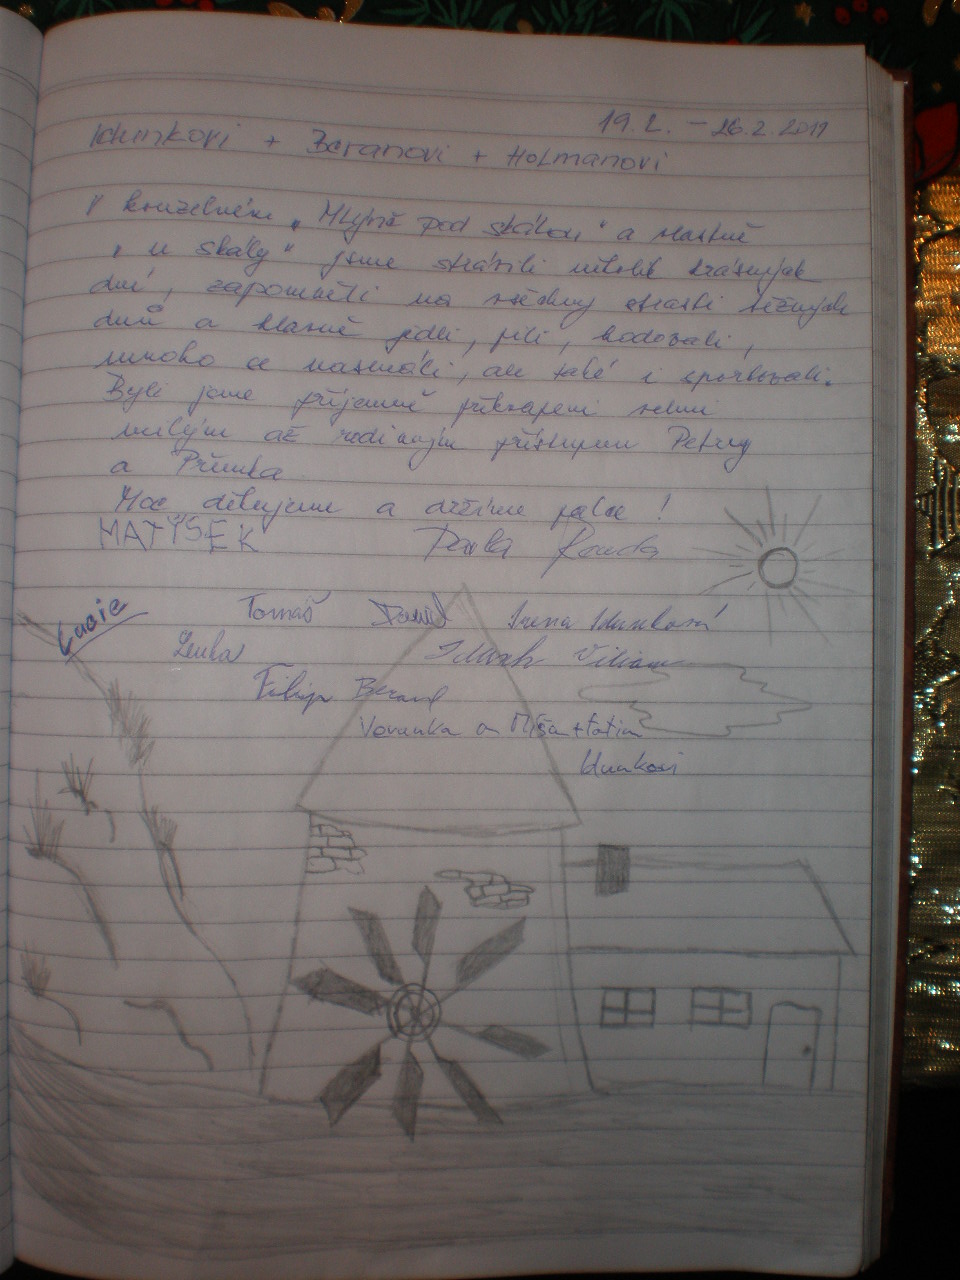 19.2. – 26.2. 2011
+ Beranovi + Holmanovi
V kouzelném „Mlýně pod skálou" a vlastně
„u skály" jsme strávili několik krásných
dní, zapomněli na všechny strasti běžných
dnů a hlavně jedli, pili, hodovali,
mnoho se nasmáli, ale také i sportovali.
Byli jsme příjemně překvapeni velmi
milým až rodinným přístupem Petry
a
Moc děkujeme a držíme palce!
MATÝSEK
Pavla
Lucie
Tomáš David Irena
Lenka
Filip Beran
Verunka a Míša + taťin